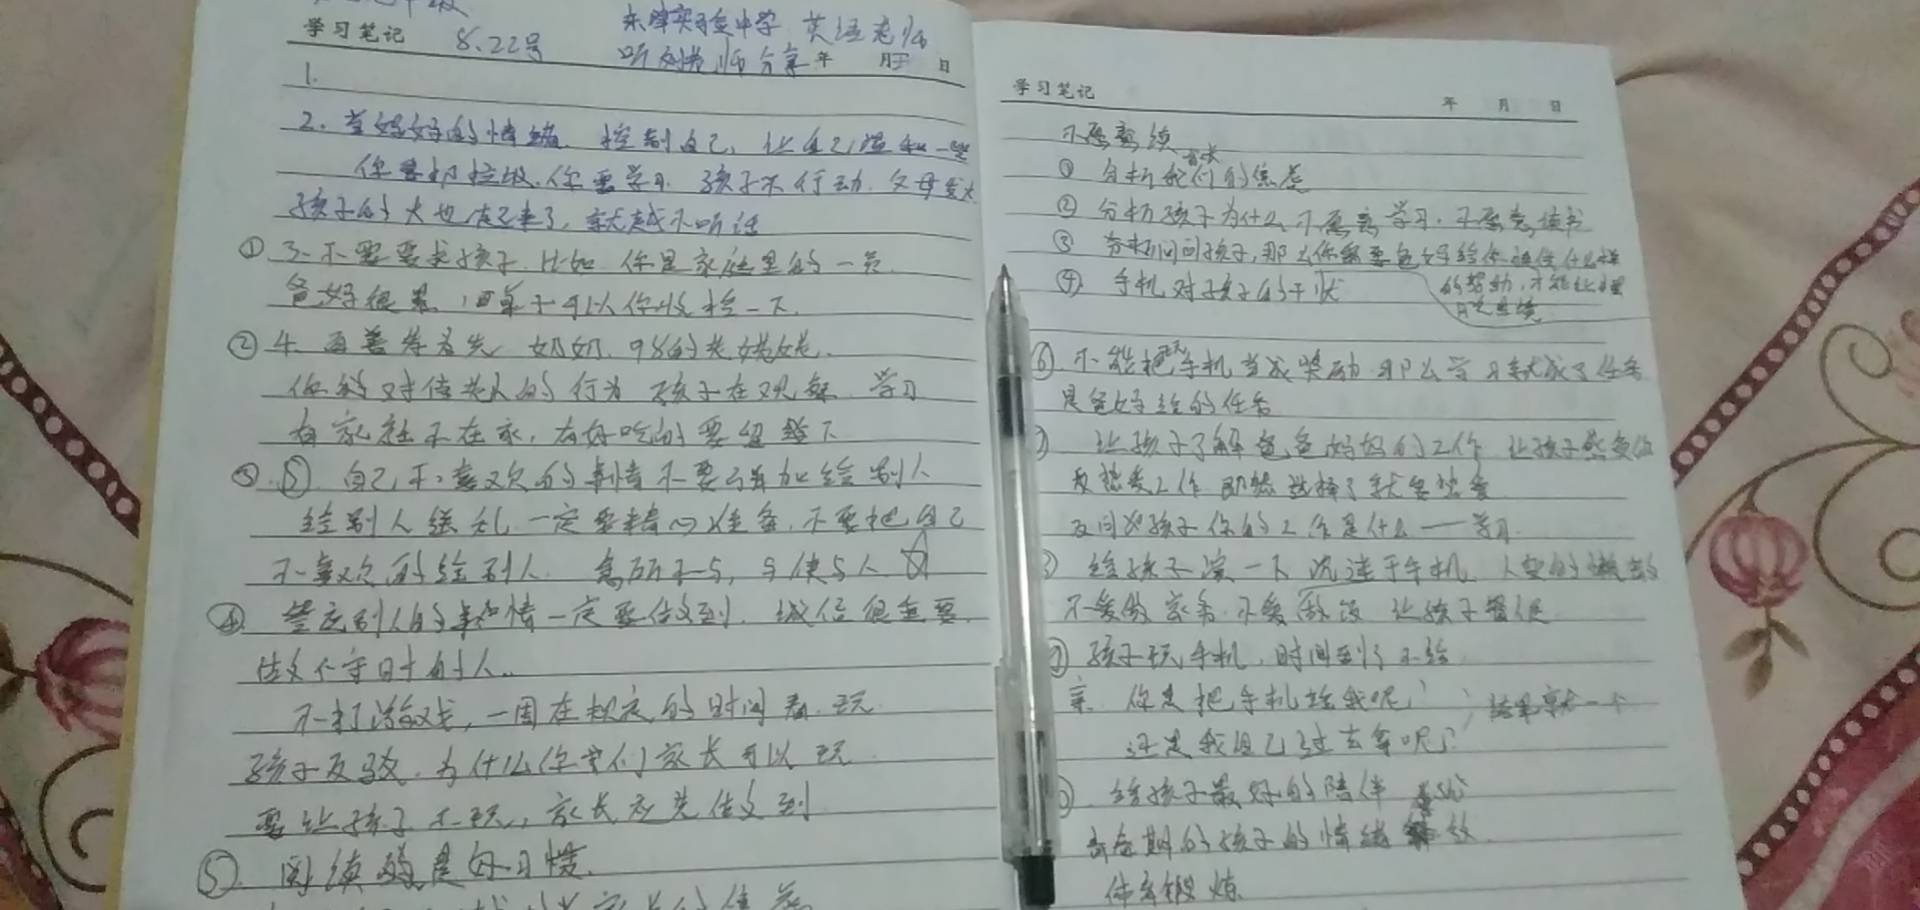 学习笔记 8.22号 天津实验中学 英语老师
听刘老师分享 年 月 日
1.
2. 管好好的情绪 控制自己, 让自己温和一些
你要扔垃圾. 你要学习 孩子不行动. 父母发火
孩子的火也起来了, 就越不听话
① 3. 不要要求孩子 比如 你是家庭里的一员.
爸妈很累, 可以你收拾一下.
② 4. 百善孝为先 奶奶. 98的老姥姥.
你的对待老人的行为 孩子在观察 学习
有家 不在家, 有好吃的要留给下
③ ⑤ 自己不喜欢的事情不要强加给别人
给别人送礼 一定要精心准备. 不要把自己
不喜欢的给别人. 己所不欲, 勿施与人 ☆
④ 答应别人的事情一定要做到. 诚信很重要.
做个守时的人..
不打游戏, 一周在规定的时间看. 玩
孩子反驳. 为什么你们家长可以玩
要让孩子不玩, 家长应先做到
⑤. 阅读的是好习惯.
学习笔记 年 月 日
不愿意读
① 分析我们的焦虑
家长
② 分析孩子为什么不愿意学习. 不愿意读书
③ 分析问问孩子, 那么你需要爸妈给你提供什么样
的帮助, 才能让
④ 手机对孩子的干扰
⑥. 不能把玩手机当成奖励 那么学习就成了任务
是爸妈给的任务
让孩子了解爸爸妈妈的工作 让孩子感受你
热爱工作 既然选择了就要热爱
反问 孩子你的工作是什么 —— 学习.
给孩子演一下 沉迷于手机 人变的懒散
不爱做家务. 不爱做饭 让孩子
孩子玩手机, 时间到了 不给
亲 你是把手机给我呢?
还是我自己过去拿呢?
给孩子最好的陪伴
青春期的孩子的情绪
体育锻炼